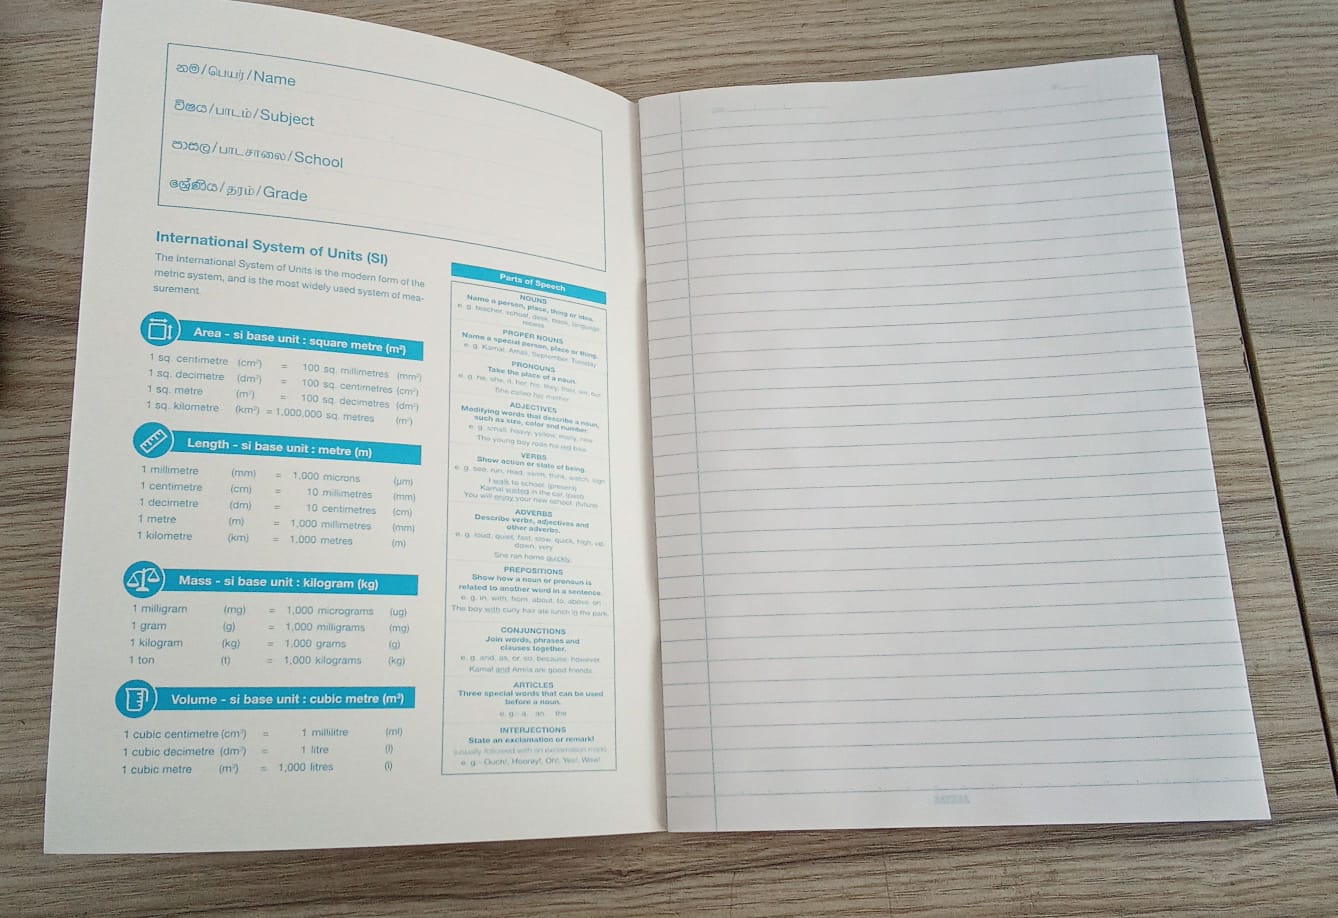 නම/பெயர்/Name
විෂය/பாடம்/Subject
පාසල/பாடசாலை/School
ශ්‍රේණිය/தரம்/Grade
International System of Units (SI)
The International System of Units is the modern form of the
metric system, and is the most widely used system of mea-
surement.
Area - si base unit : square metre (m²)
1 sq. centimetre (cm²) = 100 sq. millimetres (mm²)
1 sq. decimetre (dm²) = 100 sq. centimetres (cm²)
1 sq. metre (m²) = 100 sq. decimetres (dm²)
1 sq. kilometre (km²) = 1,000,000 sq. metres (m²)
Length - si base unit : metre (m)
1 millimetre (mm) = 1,000 microns (µm)
1 centimetre (cm) = 10 millimetres (mm)
1 decimetre (dm) = 10 centimetres (cm)
1 metre (m) = 1,000 millimetres (mm)
1 kilometre (km) = 1,000 metres (m)
Mass - si base unit : kilogram (kg)
1 milligram (mg) = 1,000 micrograms (ug)
1 gram (g) = 1,000 milligrams (mg)
1 kilogram (kg) = 1,000 grams (g)
1 ton (t) = 1,000 kilograms (kg)
Volume - si base unit : cubic metre (m³)
1 cubic centimetre (cm³) = 1 millilitre (ml)
1 cubic decimetre (dm³) = 1 litre (l)
1 cubic metre (m³) = 1,000 litres (l)
Parts of Speech
NOUNS
Name a person, place, thing or idea.
e. g. teacher, school, desk, book, language
recess
PROPER NOUNS
Name a special person, place or thing.
e. g. Kamal, Amali, September, Tuesday
PRONOUNS
Take the place of a noun.
e. g. he, she, it, her, his, they, their, we, our
She called her mother
ADJECTIVES
Modifying words that describe a noun,
such as size, color and number.
e. g. small, heavy, yellow, many, new
The young boy rode his red bike
VERBS
Show action or state of being.
e. g. see, run, read, swim, think, watch, sign
I walk to school. (present)
Kamal waited in the car. (past)
You will enjoy your new school. (future)
ADVERBS
Describe verbs, adjectives and
other adverbs.
e. g. loud, quiet, fast, slow, quick, high, up,
down, very
She ran home quickly.
PREPOSITIONS
Show how a noun or pronoun is
related to another word in a sentence.
e. g. in, with, from, about, to, above, on
The boy with curly hair ate lunch in the park.
CONJUNCTIONS
Join words, phrases and
clauses together.
e. g. and, as, or, so, because, however
Kamal and Amila are good friends.
ARTICLES
Three special words that can be used
before a noun.
e. g. a, an, the
INTERJECTIONS
State an exclamation or remark!
(usually followed with an exclamation mark)
e. g.- Ouch!, Hooray!, Oh!, Yes!, Wow!